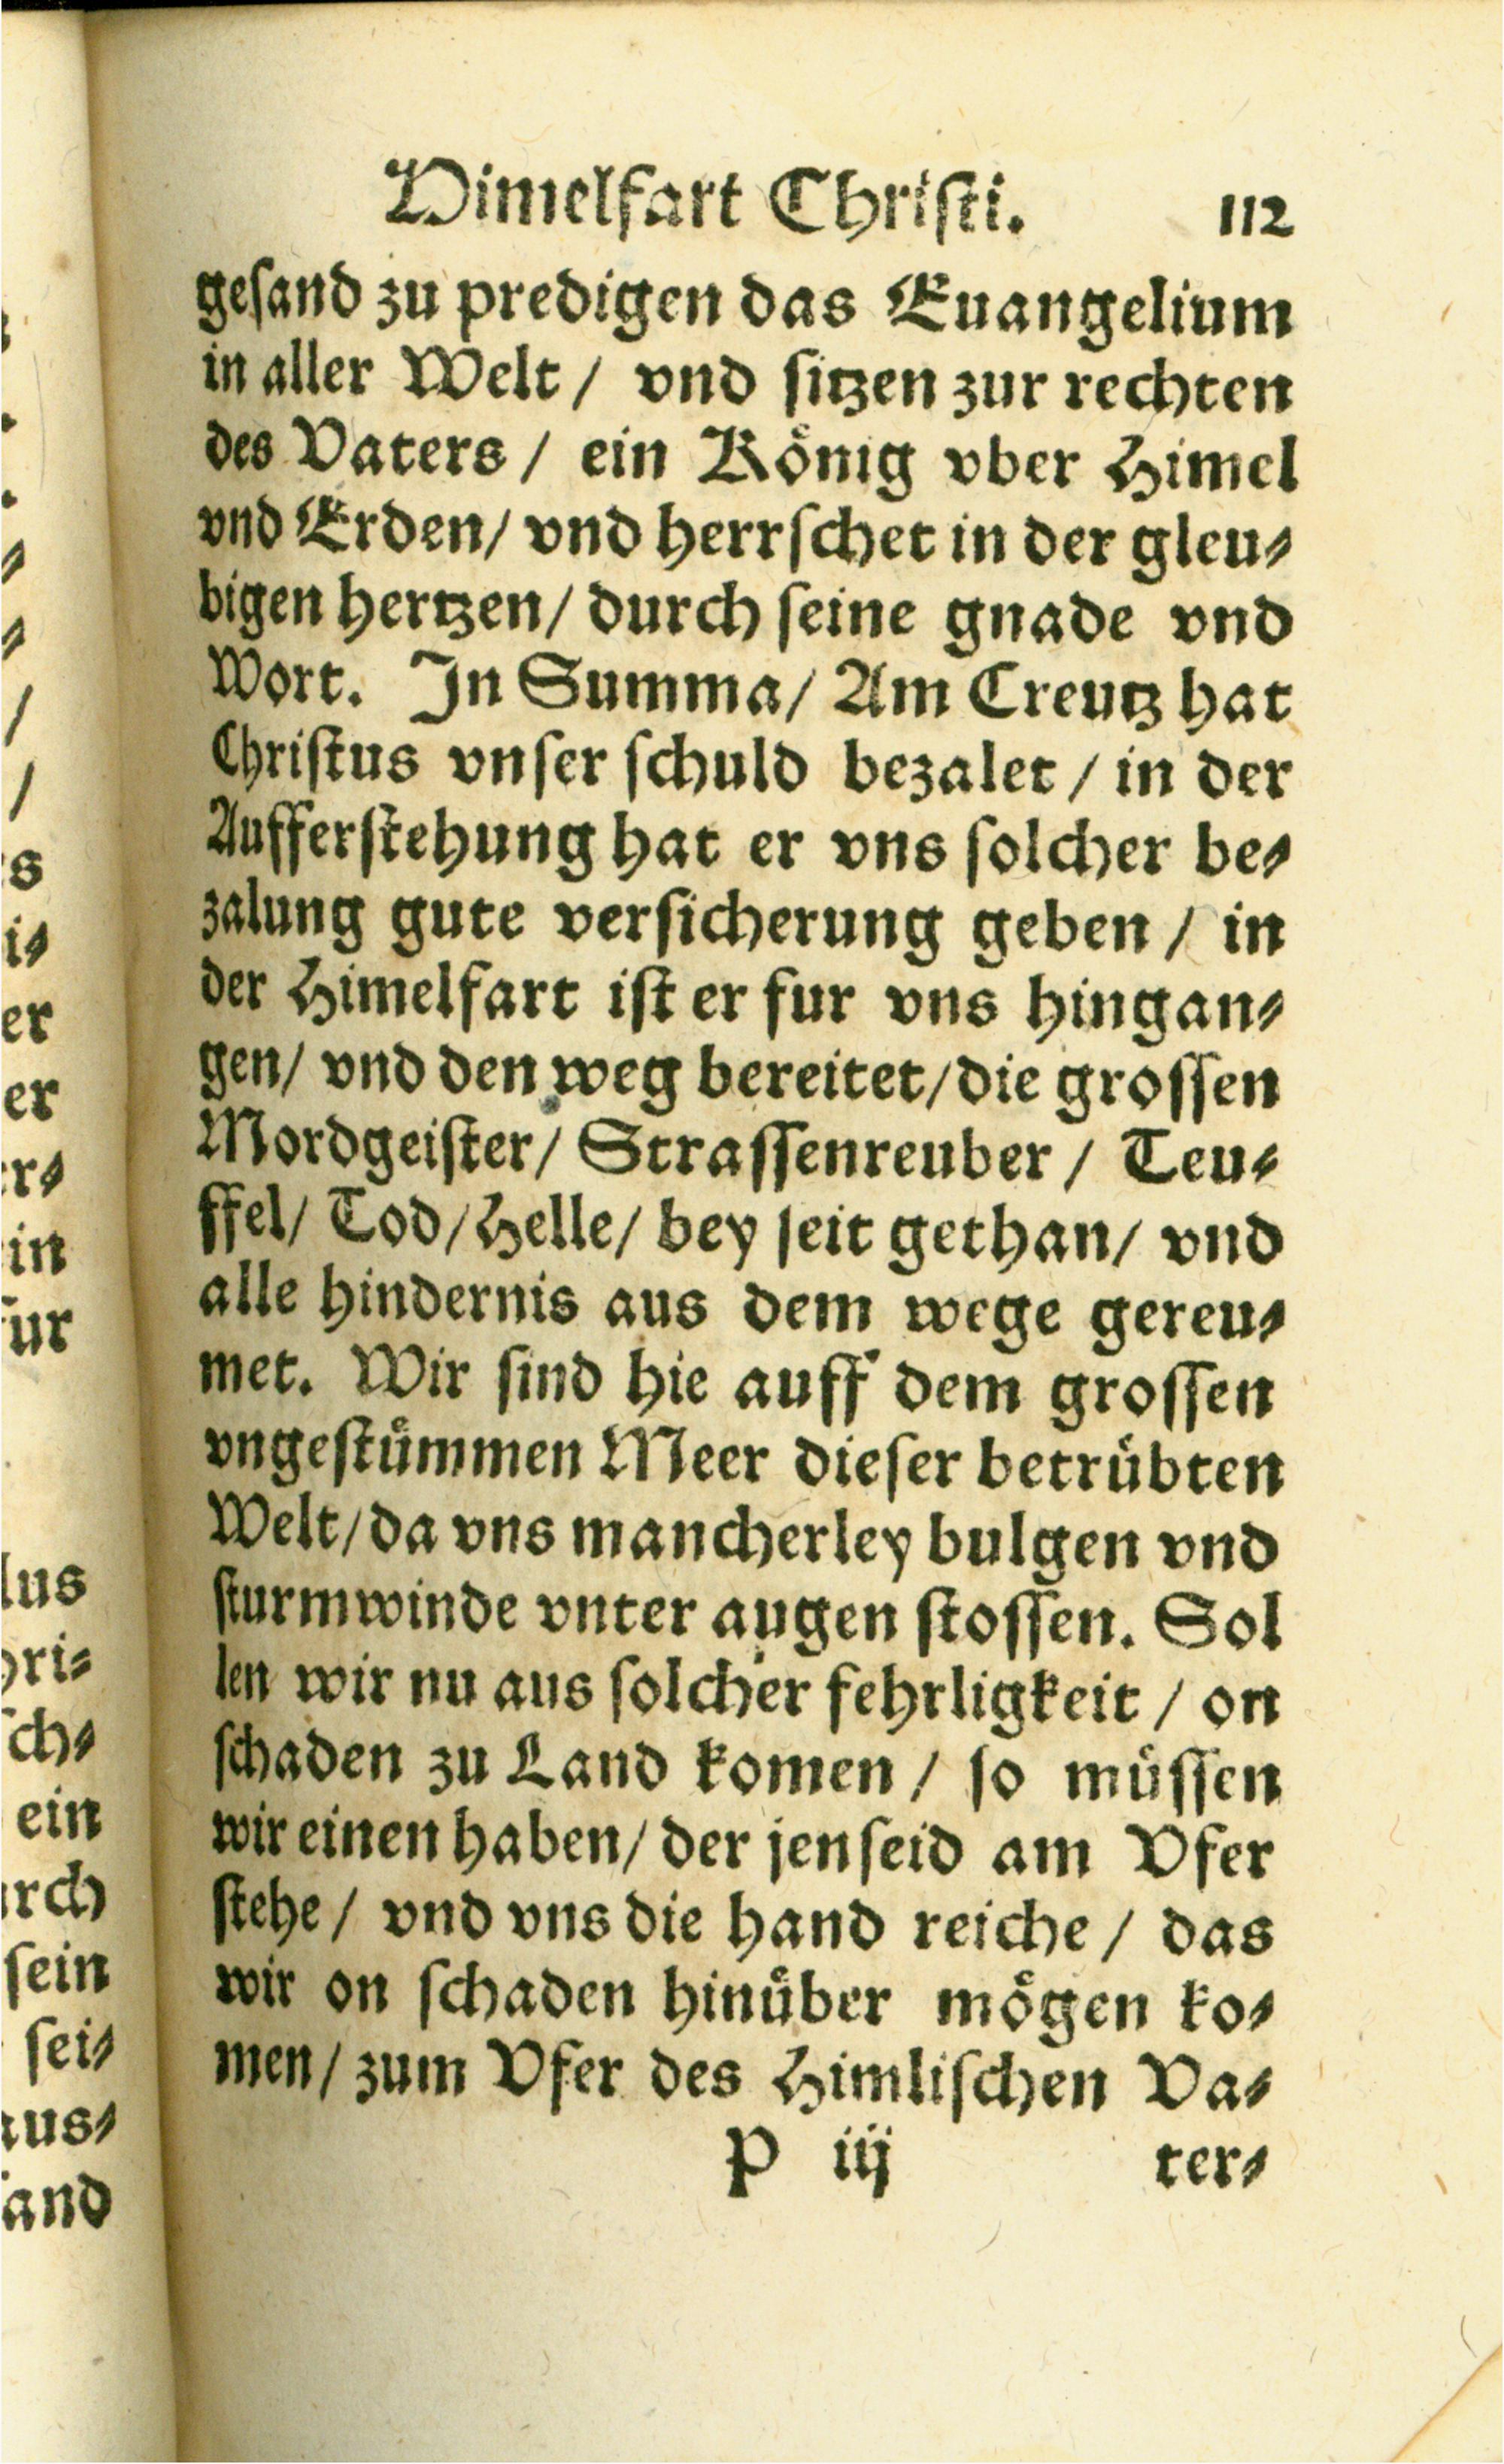 Himelfart Chriſti. 112
geſand zu predigen das Euangelium
in aller Welt / vnd ſitzen zur rechten
des Vaters / ein Koͤnig vber Himel
vnd Erden / vnd herrſchet in der gleu⸗
bigen hertzen / durch ſeine gnade vnd
Wort. In Summa / Am Creutz hat
Chriſtus vnſer ſchuld bezalet / in der
Aufferſtehung hat er vns ſolcher be⸗
zalung gute verſicherung geben / in
der Himelfart iſt er fur vns hingan⸗
gen / vnd den weg bereitet / die groſſen
Mordgeiſter / Straſſenreuber / Teu⸗
ffel / Tod / Helle / bey ſeit gethan / vnd
alle hindernis aus dem wege gereu⸗
met. Wir ſind hie auff dem groſſen
vngeſtuͤmmen Meer dieſer betruͤbten
Welt / da vns mancherley bulgen vnd
ſturmwinde vnter augen ſtoſſen. Sol
len wir nu aus ſolcher fehrligkeit / on
ſchaden zu Land komen / ſo muͤſſen
wir einen haben / der jenſeid am Vfer
ſtehe / vnd vns die hand reiche / das
wir on ſchaden hinuͤber moͤgen ko⸗
men / zum Vfer des Himliſchen Va⸗
P iij ter⸗